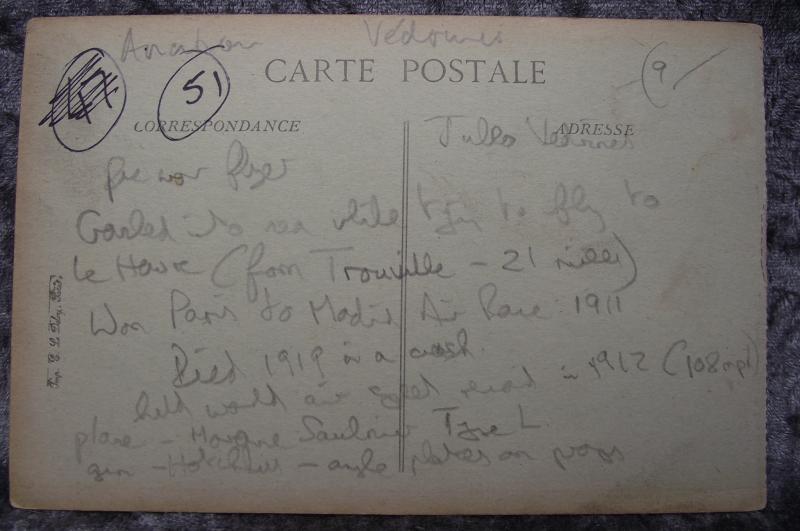 Aviation Védrines
51
9
CARTE POSTALE
CORRESPONDANCE
ADRESSE
Jules Vedrines
Pre war flyer
Crashed into sea while trying to fly to
Le Havre (from Trouville - 21 miles)
Won Paris to Madrid Air Race 1911
Died 1919 in a crash.
held world air speed record in 1912 (108 mph)
plane - Morane Saulnier Type L
gun - Hotchkiss - angle plates on props